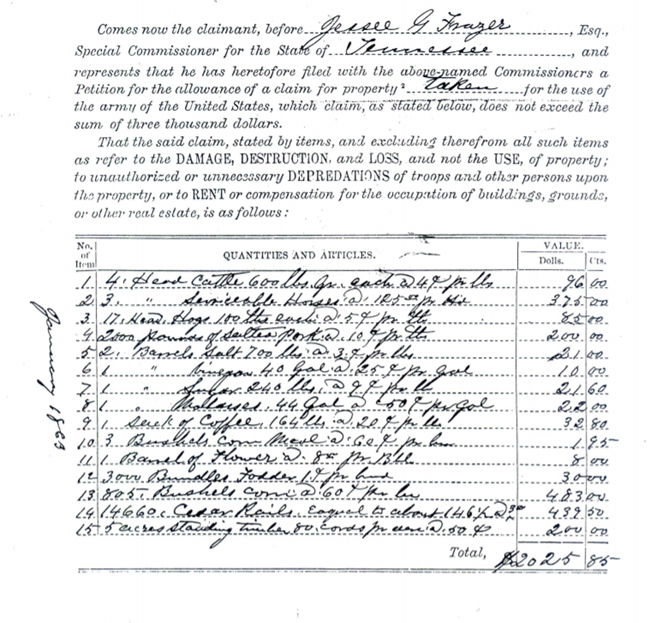 Comes now the claimant, before Jessee G Frazer, Esq.,
Special Commissioner for the State of Tennessee, and
represents that he has heretofore filed with the above-named Commissioners a
Petition for the allowance of a claim for property taken for the use of
the army of the United States, which claim, as stated below, does not exceed the
sum of three thousand dollars.
That the said claim, stated by items, and excluding therefrom all such items
as refer to the DAMAGE, DESTRUCTION, and LOSS, and not the USE, of property;
to unauthorized or unnecessary DEPREDATIONS of troops and other persons upon
the property, or to RENT or compensation for the occupation of buildings, grounds,
or other real estate, is as follows:
No. of Item QUANTITIES AND ARTICLES. VALUE.
Dolls. Cts.
1 4 Head Cattle 600 lbs Gr. each @ 4¢ pr lbs 96 00
2 3 " Serviceable Horses @ 125 00 pr Hd 375 00
3 17 Head Hogs 100 lbs each @ 5¢ pr lb 85 00
4 2000 pounds of Salted Pork @ 10¢ pr lbs 200 00
5 2 Barrels Salt 700 lbs @ 3¢ pr lbs 21 00
6 1 " Vinegar 40 Gal @ 25¢ pr Gal 10 00
7 1 " Sugar 240 lbs @ 9¢ pr lb 21 60
8 1 " Mollasses 44 Gal @ 50¢ pr Gal 22 00
9 1 Sack of Coffee 164 lbs @ 20¢ pr lb 32 80
10 3 Bushels Corn Meal @ 60¢ pr bu 1 95
11 1 Barrel of Flower @ 8 00 pr Bbl 8 00
12 3000 Bundles Fodder 1¢ pr bund 30 00
13 805 Bushels corn @ 60¢ pr bu 483 00
14 14660 Cedar Rails equal to about 146½ @ 3 00 439 50
15 5 acres standing timber 80 cords pr acre @ 50¢ 200 00
Total, $2025 85
January 1863